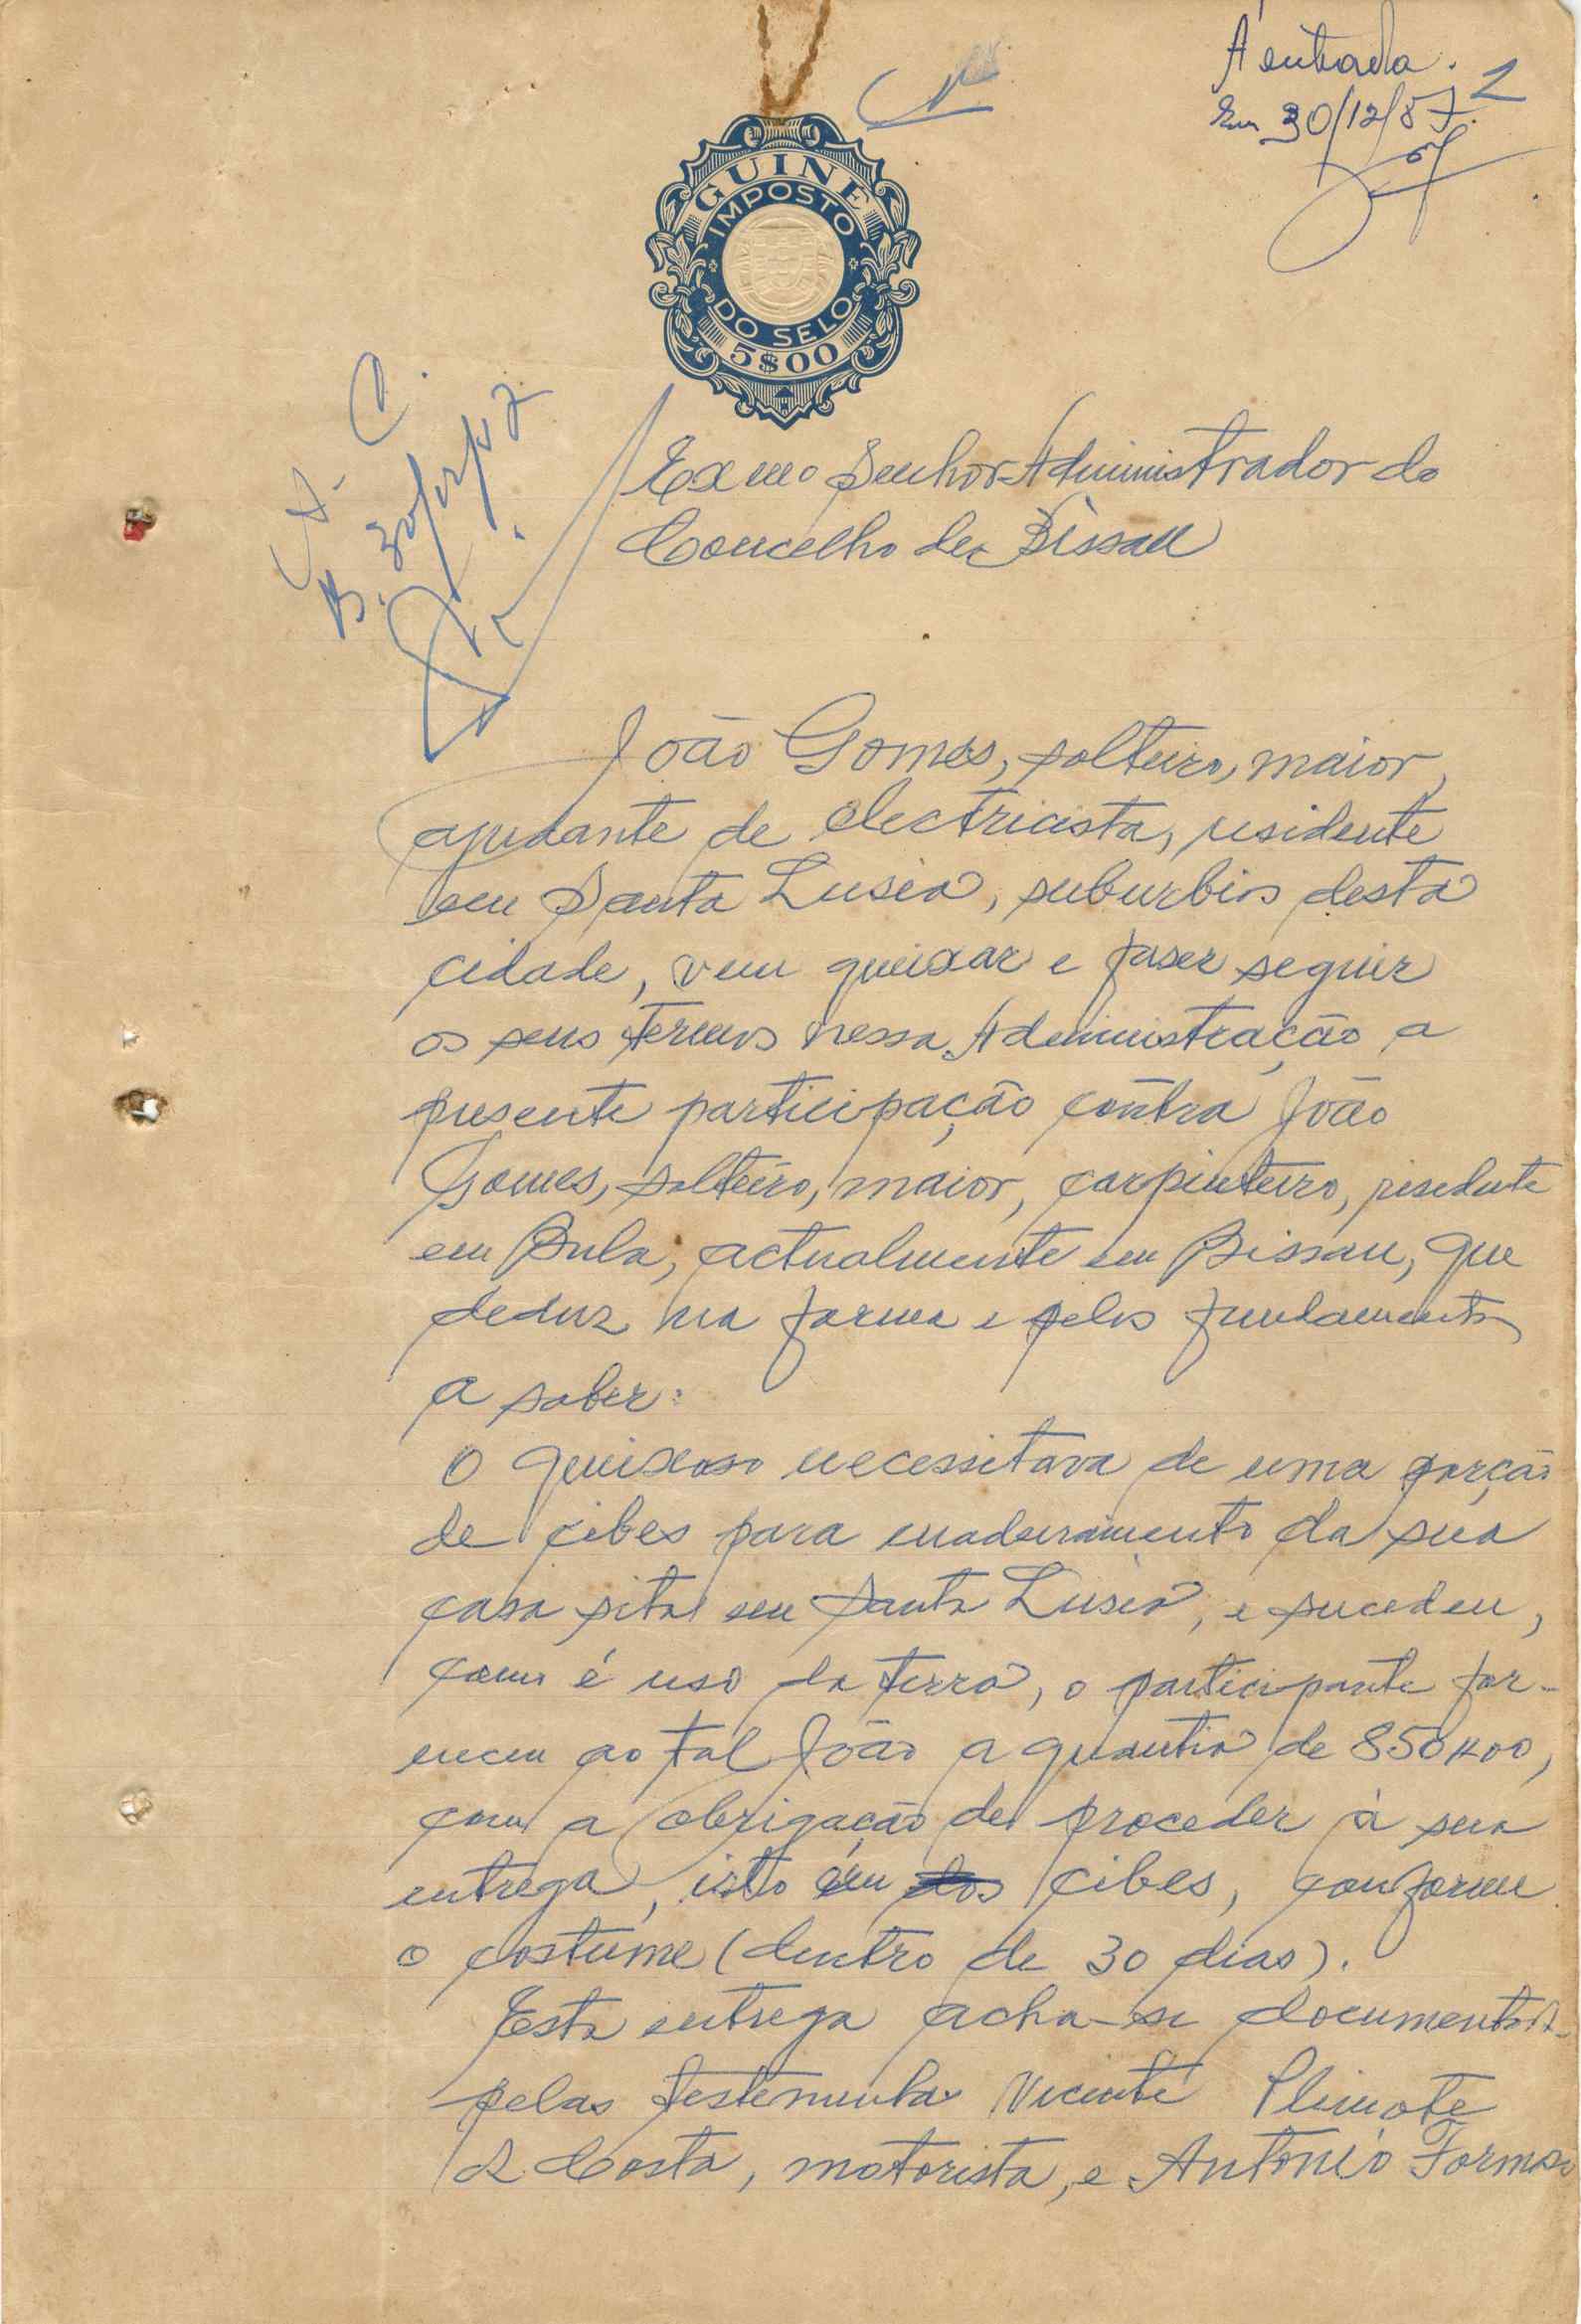 Á entrada.
Em 30/12/57.
2
GUINE
IMPOSTO
DO SELO
5$00
A. C.
B. 30/12/57
Exmo Senhor Administrador do
Concelho de Bissau
João Gomes, solteiro, maior,
ajudante de electricista, residente
em Santa Lusia, suburbios desta
cidade, vem queixar e faser seguir
os seus termos nessa Administração a
presente participação contra João
Gomes, solteiro, maior, carpinteiro, risedente
em Bula, actualmente em Bissau, que
deduz na forma e pelos fundamentos
a saber:
O queixoso necessitava de uma porção
de cibes para madeiramento da sua
casa sita em Santa Lusia, e sucedeu,
como é uso da terra, o participante for-
neceu ao tal João a quantia de 850$00,
com a obrigação de proceder à sua
entrega, isto em dos cibes, conforme
o costume (dentro de 30 dias).
Esta entrega acha-se documentada
pelas testemunhas Vicente
da Costa, motorista, e António Formoso